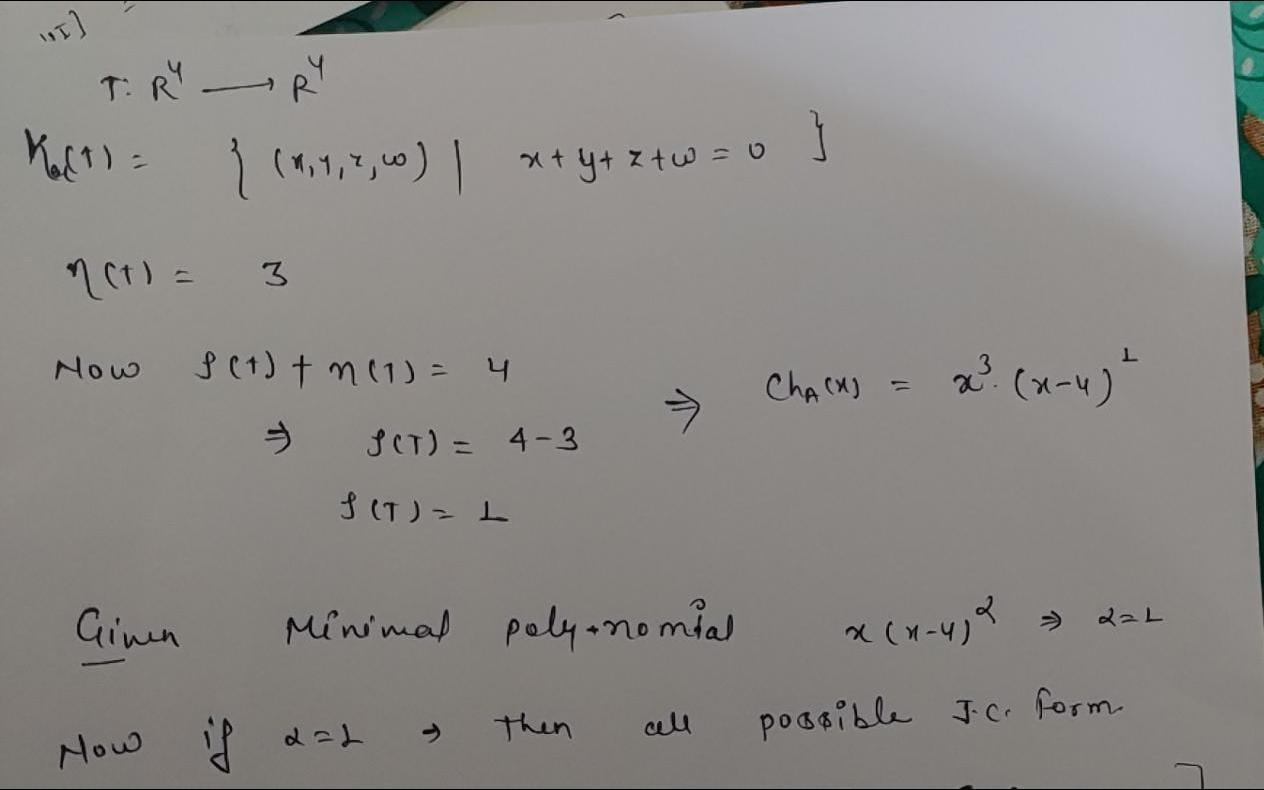 "I]
T: R⁴ ⟶ R⁴
Ker(T) = { (x,y,z,w) | x+y+z+w = 0 }
η(T) = 3
Now ρ(T) + η(T) = 4
⇒ Ch_A(x) = x³·(x-4)¹
⇒ ρ(T) = 4-3
ρ(T) = 1
Given Minimal polynomial x(x-4)^α ⇒ α=1
Now if α=1 → then all possible J.C. form
]